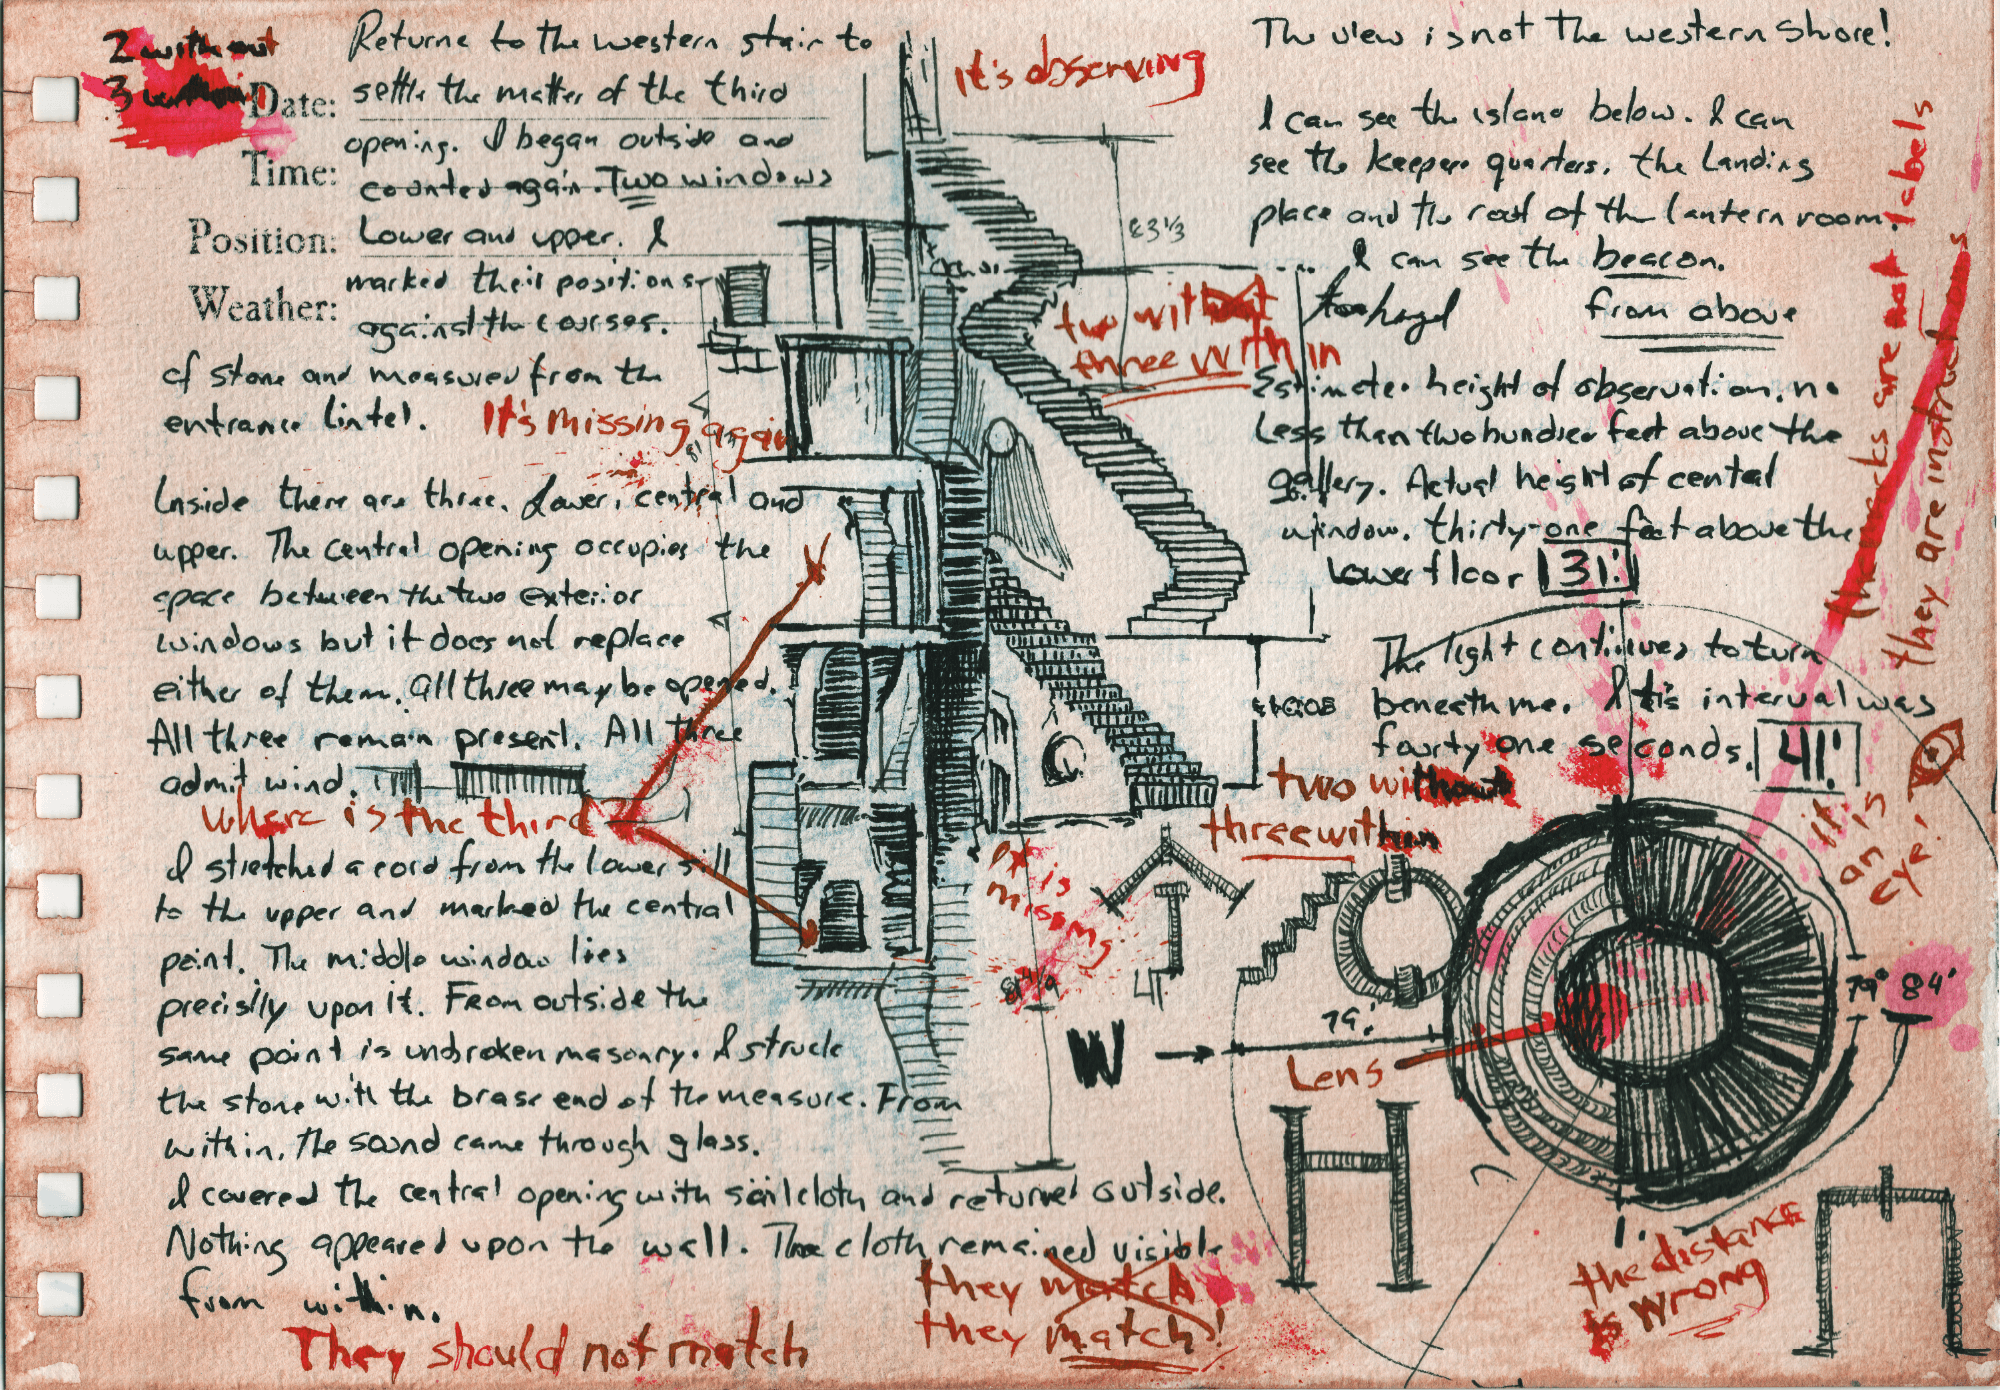 2 without
3 within
Date:
Time:
Position:
Weather:
Returne to the western stair to
settle the matter of the third
opening. I began outside and
counted again. Two windows
Lower and upper. I
marked their positions
against the courses.
of stone and measured from the
entrance lintel.
It's missing again
Inside there are three. Lower, central and
upper. The central opening occupies the
space between the two exterior
windows but it does not replace
either of them. all three may be opened.
All three remain present. All three
admit wind.
Where is the third
I stretched a cord from the lower sill
to the upper and marked the central
point. The middle window lies
precisily upon it. From outside the
same point is unbroken masonry. I struck
the stone with the brase end of the measure. From
within, the sound came through glass.
I covered the central opening with sailcloth and returned outside.
Nothing appeared upon the wall. The cloth remained visible
from within.
They should not match
they match
they match!
It's observing
83 1/3
two without
three within
It is
missing
W
79.'
Lens
two without
three within
The view is not the western shore!
I can see the island below. I can
see the keepers quarters. the Landing
place and the roof of the lantern room.
I can see the beacon.
from above
Estimate. height of observation. no
Less than two hundred feet above the
gallery. Actual height of central
window. thirty-one feet above the
Lower floor 31'
The light continues to turn
beneath me. Its interval was
fourty one seconds. 41.'
the marks are not labels
they are instructions
it is
an
eye!
79° 84'
1.
the distance
is wrong